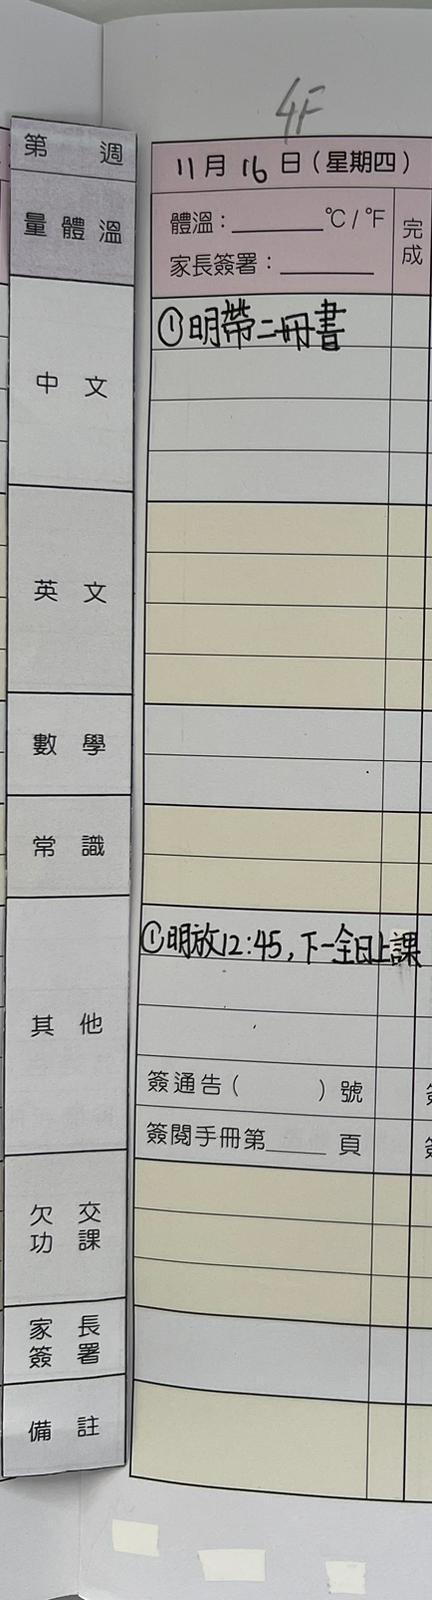 4F
第 週
11月16日(星期四)
量體溫
體溫:______°C/°F
完成
家長簽署:______
中文
①明帶二冊書
英文
數學
常識
其他
①明放12:45,下一全日上課
簽通告( )號
簽閱手冊第____頁
欠交功課
家長簽署
備註